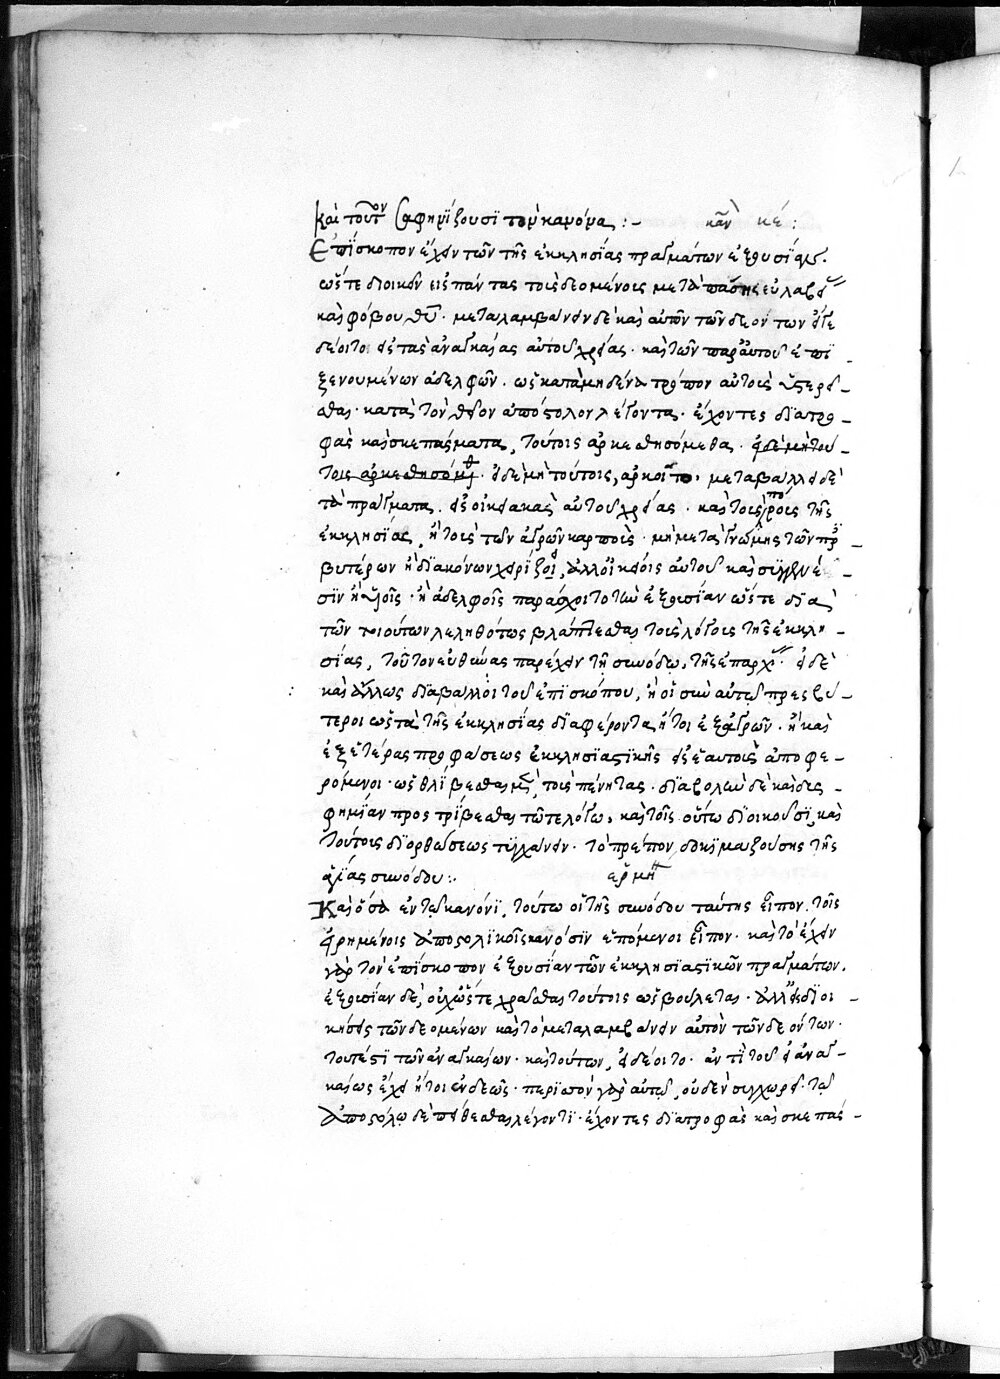 καὶ τοῦτον σαφηνίζουσι τὸν κανόνα :- κανὼν κε :
Ἐπίσκοπον ἔχειν τῶν τῆς ἐκκλησίας πραγμάτων ἐξουσίαν.
ὥστε διοικεῖν εἰς πάντας τοὺς δεομένους μετὰ πάσης εὐλαβεί
ας καὶ φόβου θῦ · μεταλαμβάνειν δὲ καὶ αὐτὸν τῶν δεόντων εἴγε
δέοιτο εἰς τὰς ἀναγκαίας αὐτοῦ χρείας · καὶ τῶν παρ' αὐτοῦ ἐπι
ξενουμένων ἀδελφῶν. ὡς κατὰ μηδένα τρόπον αὐτοὺς ὑστερεῖ-
σθαι · κατὰ τὸν θεῖον ἀπόστολον λέγοντα · ἔχοντες διατρο-
φὰς καὶ σκεπάσματα, τούτοις ἀρκεσθησόμεθα · εἰ δὲ μὴ τού-
τοις ἀρκεσθησόμεθα · εἰ δὲ μὴ τούτοις ἀρκοῖτο, μεταβάλλει δὲ
τὰ πράγματα εἰς οἰκειακὰς αὐτοῦ χρείας · καὶ τοὺς πόρους τῆς
ἐκκλησίας, ἢ τοὺς τῶν ἀγρῶν καρποὺς · μὴ μετὰ γνώμης τῶν πρε-
βυτέρων ἢ διακόνων χειρίζοι, ἀλλ' οἰκείοις αὐτοῦ καὶ συγγενέ-
σιν ἢ υἱοῖς · ἢ ἀδελφοῖς παράσχοιτο τὴν ἐξουσίαν ὥστε διὰ
τῶν τοιούτων λεληθότως βλάπτεσθαι τοὺς λόγους τῆς ἐκκλη-
σίας, τοῦτον εὐθύνας παρέχειν τῇ συνόδῳ τῆς ἐπαρχίας · εἰ δὲ
καὶ ἄλλως διαβάλλοι τοῦ ἐπισκόπου, ἢ οἱ σὺν αὐτῷ πρεσβύ-
τεροι ὡς τὰ τῆς ἐκκλησίας διαφέροντα ἤτοι ἐξ ἀγρῶν · ἢ καὶ
ἐξ ἑτέρας προφάσεως ἐκκλησιαστικῆς εἰς ἑαυτοὺς ἀποφε-
ρόμενοι · ὡς θλίβεσθαι μὲν τοὺς πένητας · διαβολὴν δὲ καὶ δυσ-
φημίαν προστρίβεσθαι τῷ τε λόγῳ, καὶ τοῖς οὕτω διοικοῦσι, καὶ
τούτους διορθώσεως τυγχάνειν · τὸ πρέπον δοκιμαζούσης τῆς
ἁγίας συνόδου :. ἑρμη
Καὶ ὅσα ἐν τῷ κανόνι τούτῳ οἱ τῆς συνόδου ταύτης εἶπον τοῖς
εἰρημένοις ἀποστολικοῖς κανόσιν ἑπόμενοι εἶπον · καὶ τὸ ἔχειν
γὰρ τὸν ἐπίσκοπον ἐξουσίαν τῶν ἐκκλησιαστικῶν πραγμάτων.
ἐξουσίαν δὲ, οὐχ ὥστε χρᾶσθαι τούτοις ὡς βούλεται · ἀλλ' εἰς διοί-
κησιν τῶν δεομένων καὶ τὸ μεταλαμβάνειν αὐτὸν τῶν δεόντων ·
τουτέστι τῶν ἀναγκαίων · καὶ τούτων, εἰ δέοιτο · ἀντὶ τοῦ εἰ ἀναγ-
καίως ἔχει ἤτοι ἐνδεῶς · περισσὸν γὰρ αὐτῷ, οὐδὲν συγχωρεῖ · τῷ
ἀποστόλῳ δὲ πείθεσθαι λέγοντι · ἔχοντες διατροφὰς καὶ σκεπάσ-